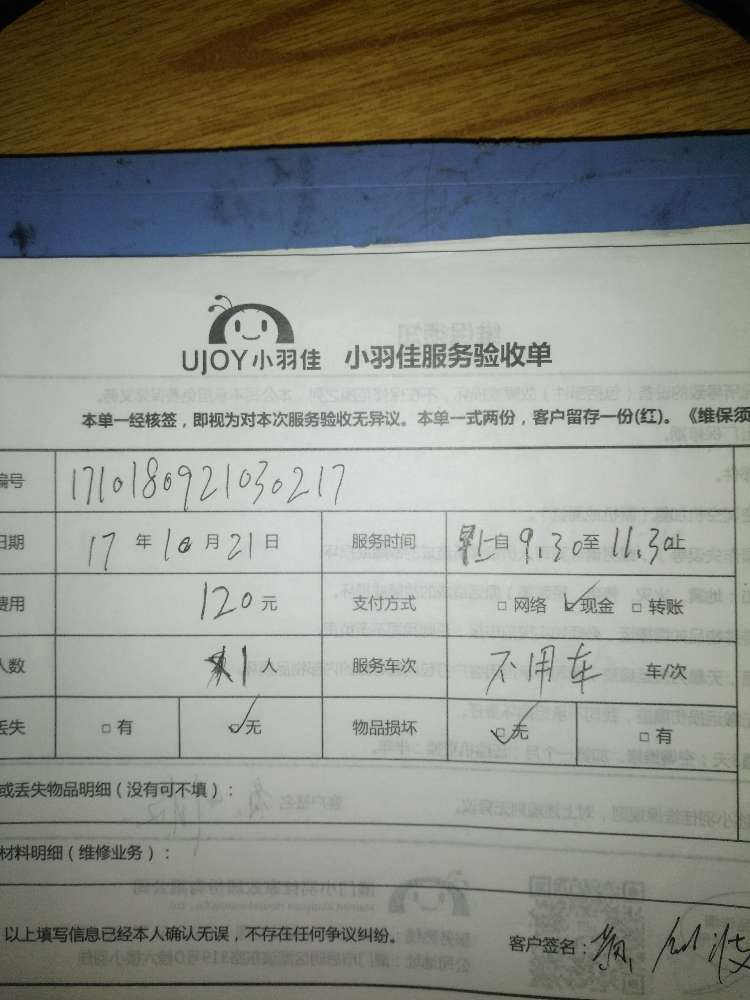 UJOY小羽佳 小羽佳服务验收单
本单一经核签，即视为对本次服务验收无异议。本单一式两份，客户留存一份(红)。《维保须
编号 1710180921030217
日期 17年10月21日 服务时间 自9.30至11.30止
费用 120元 支付方式 □网络 ☑现金 □转账
人数 1人 服务车次 不用车 车/次
丢失 □有 ☑无 物品损坏 ☑无 □有
或丢失物品明细（没有可不填）：
材料明细（维修业务）：
以上填写信息已经本人确认无误，不存在任何争议纠纷。 客户签名：